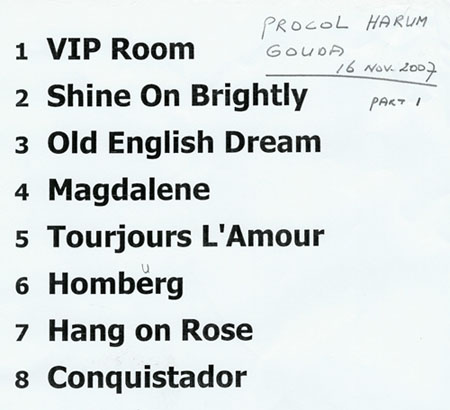 PROCOL HARUM
GOUDA
16 NOV. 2007
PART 1
1 VIP Room
2 Shine On Brightly
3 Old English Dream
4 Magdalene
5 Tourjours L'Amour
u
6 Homberg
7 Hang on Rose
8 Conquistador